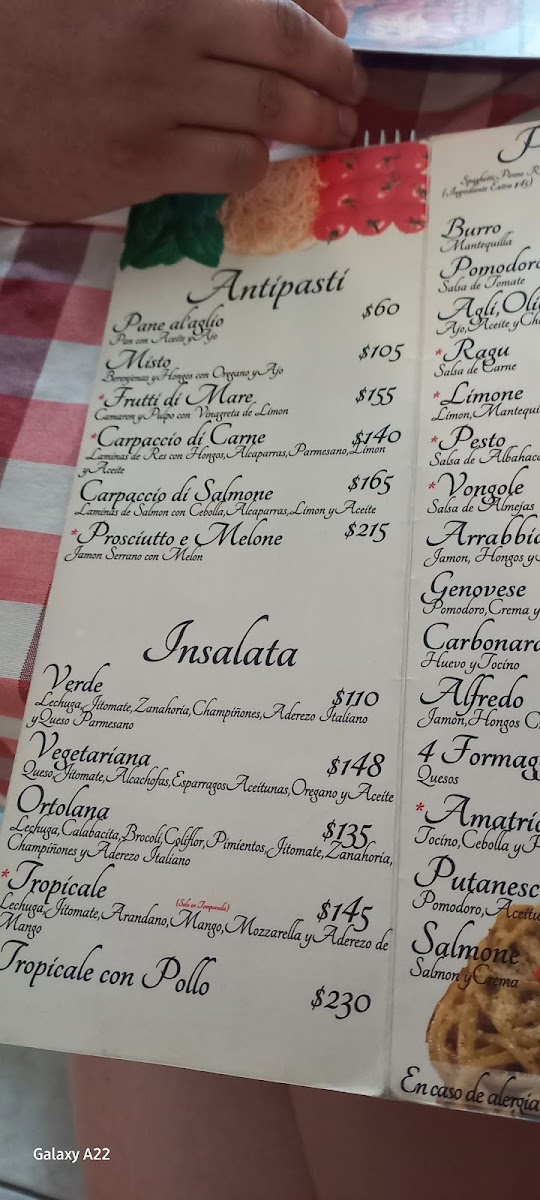 Antipasti
Pane al'aglio $60
Pan con Aceite y Ajo
Misto $105
Berenjenas y Hongos con Oregano y Ajo
*Frutti di Mare $155
Camaron y Pulpo con Vinagreta de Limon
*Carpaccio di Carne $140
Laminas de Res con Hongos, Alcaparras, Parmesano, Limon
y Aceite
Carpaccio di Salmone $165
Laminas de Salmon con Cebolla, Alcaparras, Limon y Aceite
*Prosciutto e Melone $215
Jamon Serrano con Melon
Insalata
Verde $110
Lechuga, Jitomate, Zanahoria, Champiñones, Aderezo Italiano
y Queso Parmesano
Vegetariana $148
Queso, Jitomate, Alcachofas, Esparragos Aceitunas, Oregano y Aceite
Ortolana $135
Lechuga, Calabacita, Brocoli, Coliflor, Pimientos, Jitomate, Zanahoria,
Champiñones y Aderezo Italiano
*Tropicale (Solo en Temporada) $145
Lechuga, Jitomate, Arandano, Mango, Mozzarella y Aderezo de
Mango
Tropicale con Pollo $230
P
Spaghetti, Penne R
(Ingrediente Extra $45)
Burro
Mantequilla
Pomodoro
Salsa de Tomate
Agli, Oli
Ajo, Aceite y Ch
*Ragu
Salsa de Carne
*Limone
Limon, Mantequi
*Pesto
Salsa de Albahac
*Vongole
Salsa de Almejas
Arrabbi
Jamon, Hongos y
Genovese
Pomodoro, Crema y
Carbonar
Huevo y Tocino
Alfredo
Jamòn, Hongos C
4 Formag
Quesos
*Amatri
Tocino, Cebolla y P
Putanesc
Pomodoro, Aceitu
Salmone
Salmon y Crema
En caso de alergia
Galaxy A22